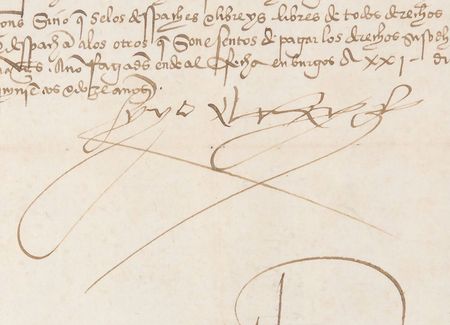 Sino q̃ se los despacheis e libreys libres de todos derechos
despacha a los otros q̃ son esentos de pagar los derechos suso dh
no fagades ende al fecha en burgos A XXI di
e doze años.
yo el Rey